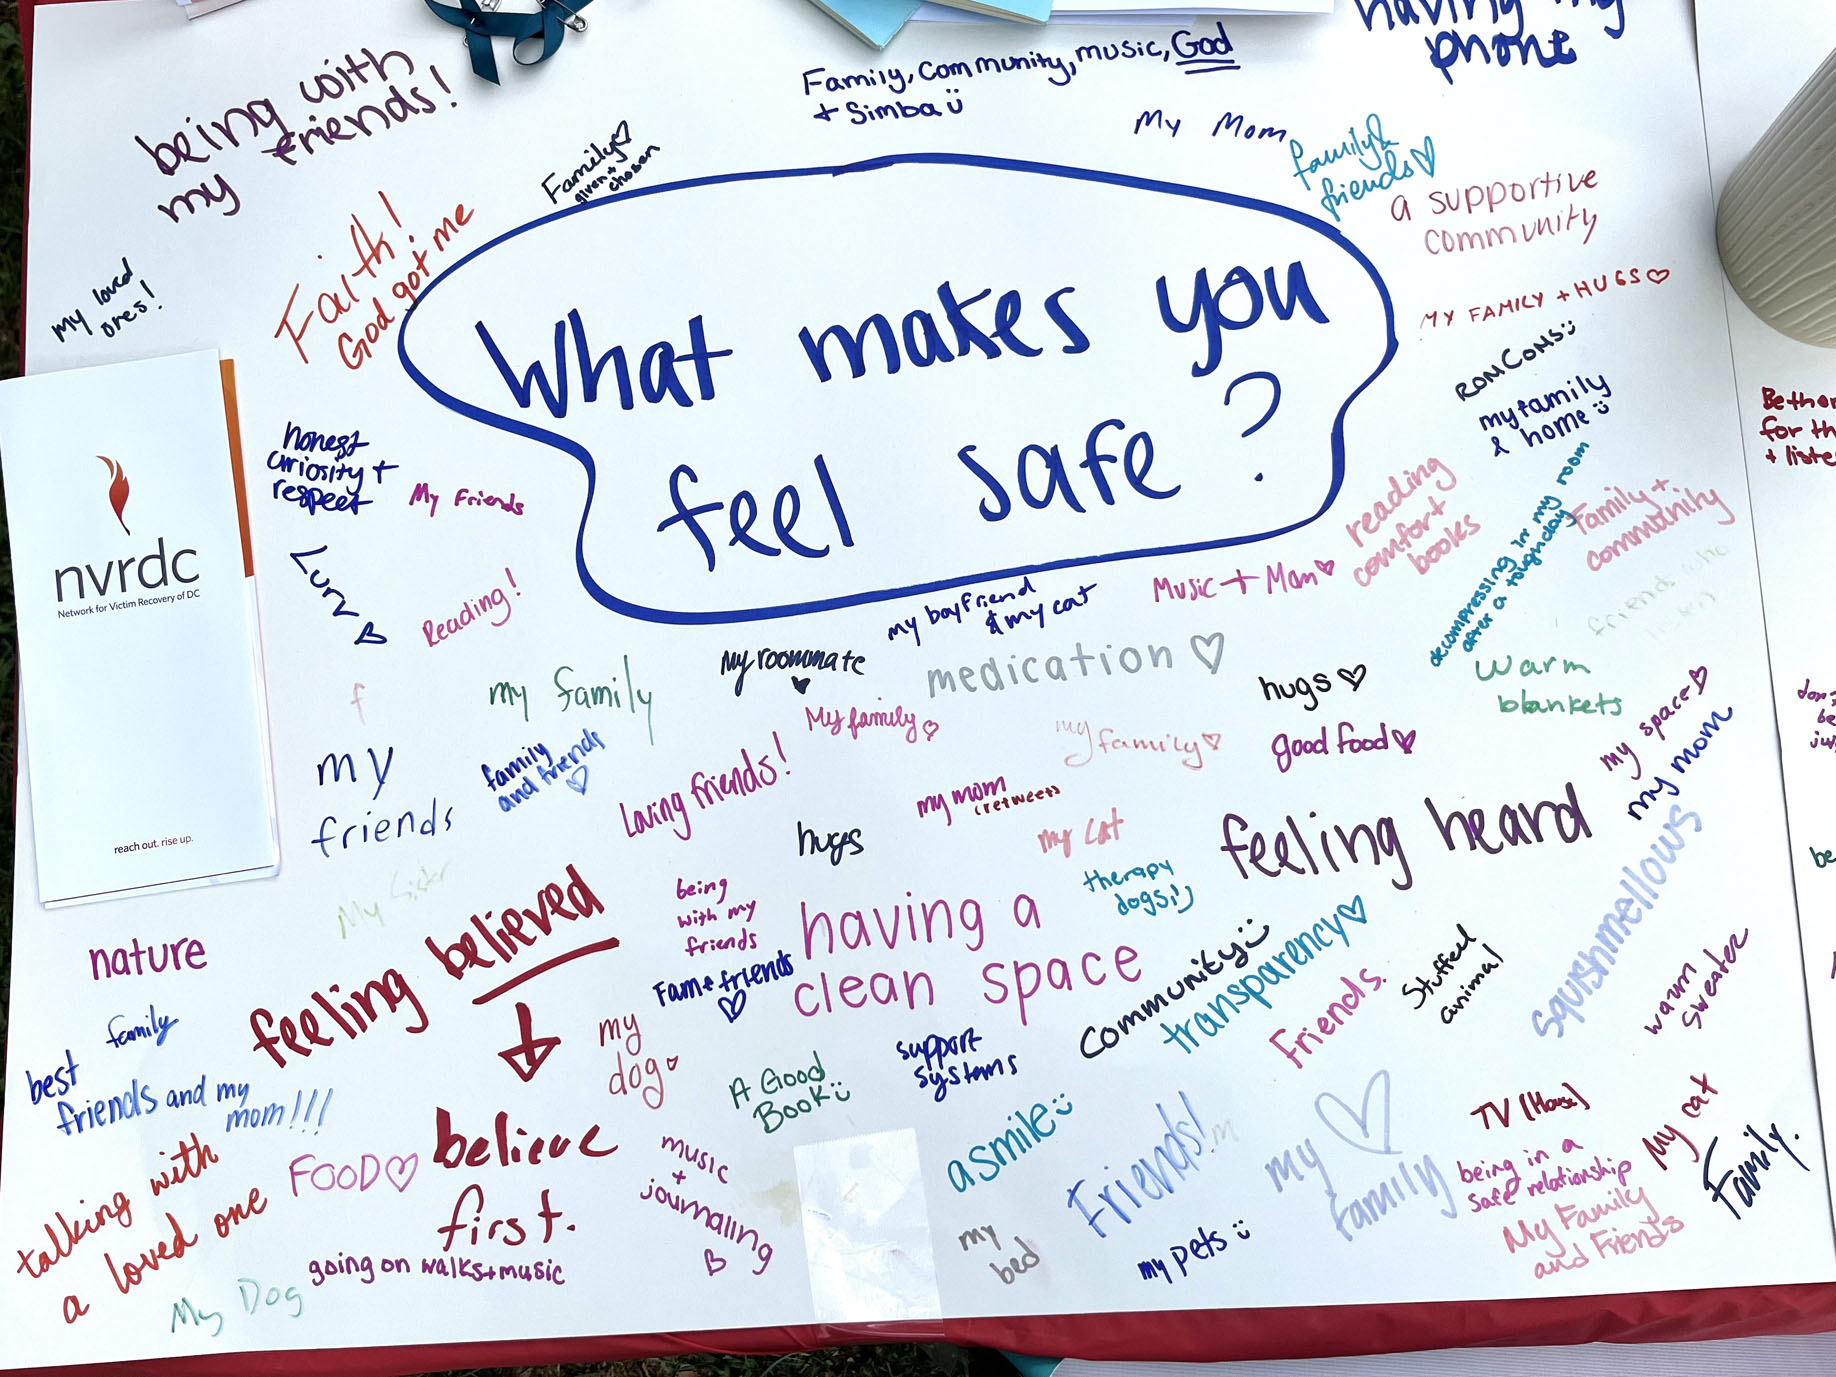 having my
phone
being with
my friends!
Family, Community, music, God
+ Simba
My Mom
family &
friends
Family
given +
chosen
a supportive
community
Faith!
God got me
my loved
ones!
MY FAMILY + HUGS
ROMCOMS
my family
& home
What makes you
feel safe?
nvrdc
Network for Victim Recovery of DC
reach out. rise up.
honest
curiosity +
respect
My Friends
reading
comfort
books
decompressing in my room
after a tough day
Family +
community
friends who
listen
for th
+ liste
Lurv
Reading!
my boyfriend
& my cat
Music + Mom
my family
My roommate
medication
hugs
warm
blankets
f
My family
my family
good food
my space
my mom
my
friends
family
and friends
loving friends!
my mom
(retweet)
my cat
feeling heard
hugs
therapy
dogs
squishmellows
My Sister
feeling believed
being
with my
friends
having a
clean space
Fam + friends
community
transparency
Friends.
Stuffed
animal
warm
sweater
nature
family
best
friends and my
mom!!!
my
dog
A Good
Book
support
systems
believe
first.
FOOD
talking with
a loved one
music
+
journaling
a smile
Friends!
my
family
TV (House)
being in a
safe relationship
My cat
Family.
My Family
and Friends
my
bed
my pets
going on walks + music
My Dog